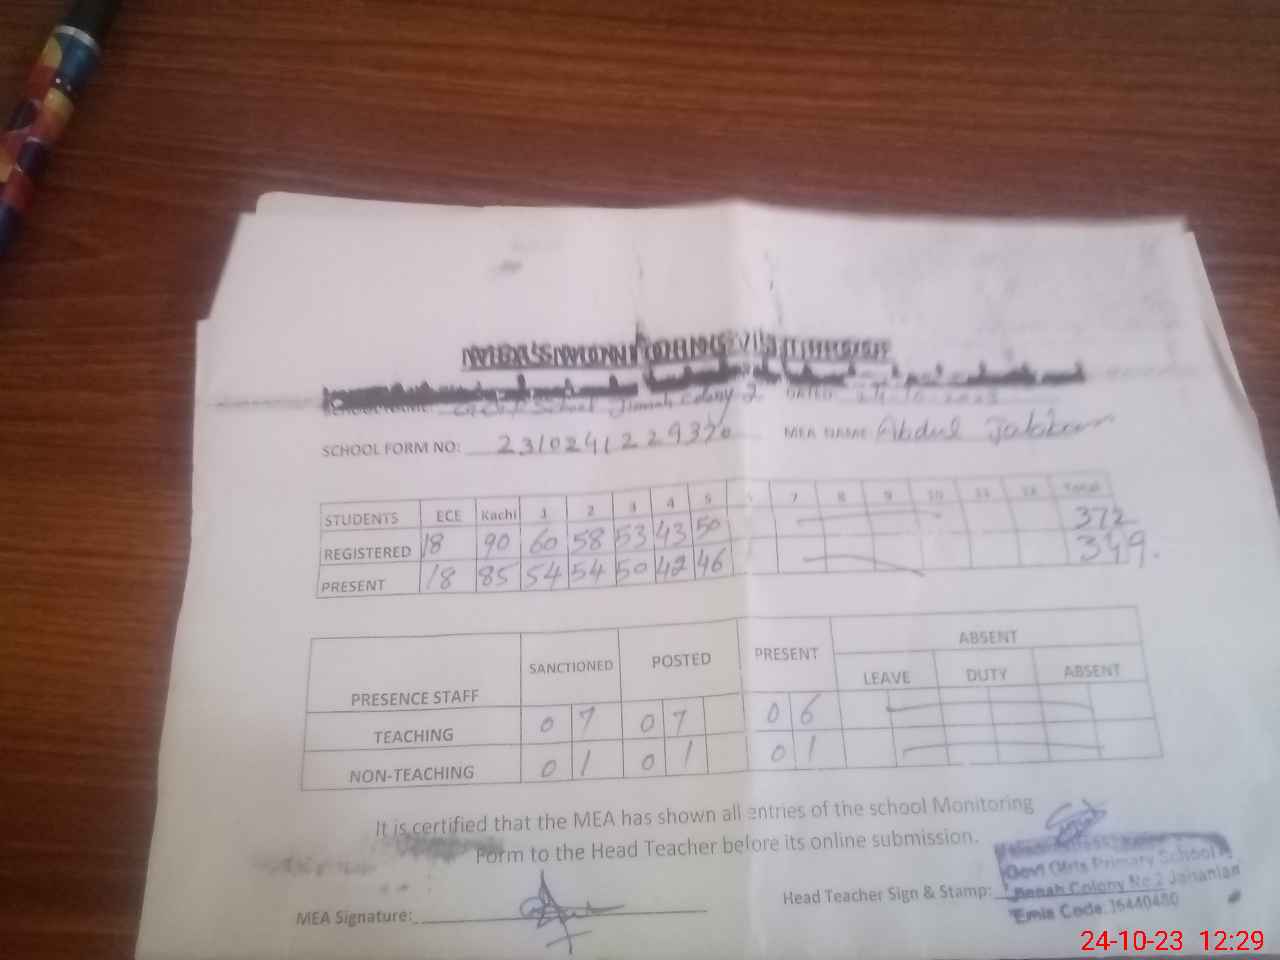 SCHOOL NAME: School Jinnah Colony 2 DATED 24-10-2023
SCHOOL FORM NO: MEA NAME Abdul
STUDENTS ECE Kachi 1 2 3 4 5 7 8 9 10 11 12 Total
REGISTERED 18 90 60 58 53 43 50 372
PRESENT 18 85 54 54 50 42 46 349.
PRESENCE STAFF SANCTIONED POSTED PRESENT ABSENT
LEAVE DUTY ABSENT
TEACHING 0 7 0 7 0 6
NON-TEACHING 0 1 0 1 0 1
It is certified that the MEA has shown all entries of the school Monitoring
Form to the Head Teacher before its online submission.
MEA Signature: Head Teacher Sign & Stamp:
Govt Girls Primary School
Jinnah Colony No.2 Jahanian
Emis Code
24-10-23 12:29